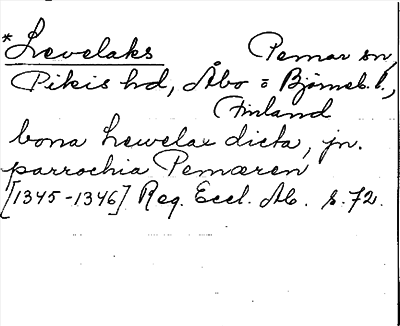 *Levelaks Pemar sn,
Pikis hd, Åbo o Björneb. l.,
Finland
bona Lewelax dicta, jn.
parrochia Pemæren
[1345-1346] Reg. Eccl. Ab. s. 72.